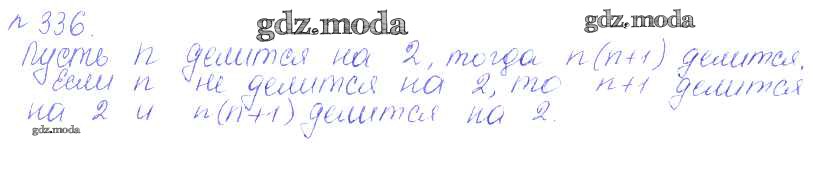 № 336.
gdz.moda
gdz.moda
Пусть n делится на 2, тогда n(n+1) делится.
Если n не делится на 2, то n+1 делится
на 2 и n(n+1) делится на 2.
gdz.moda